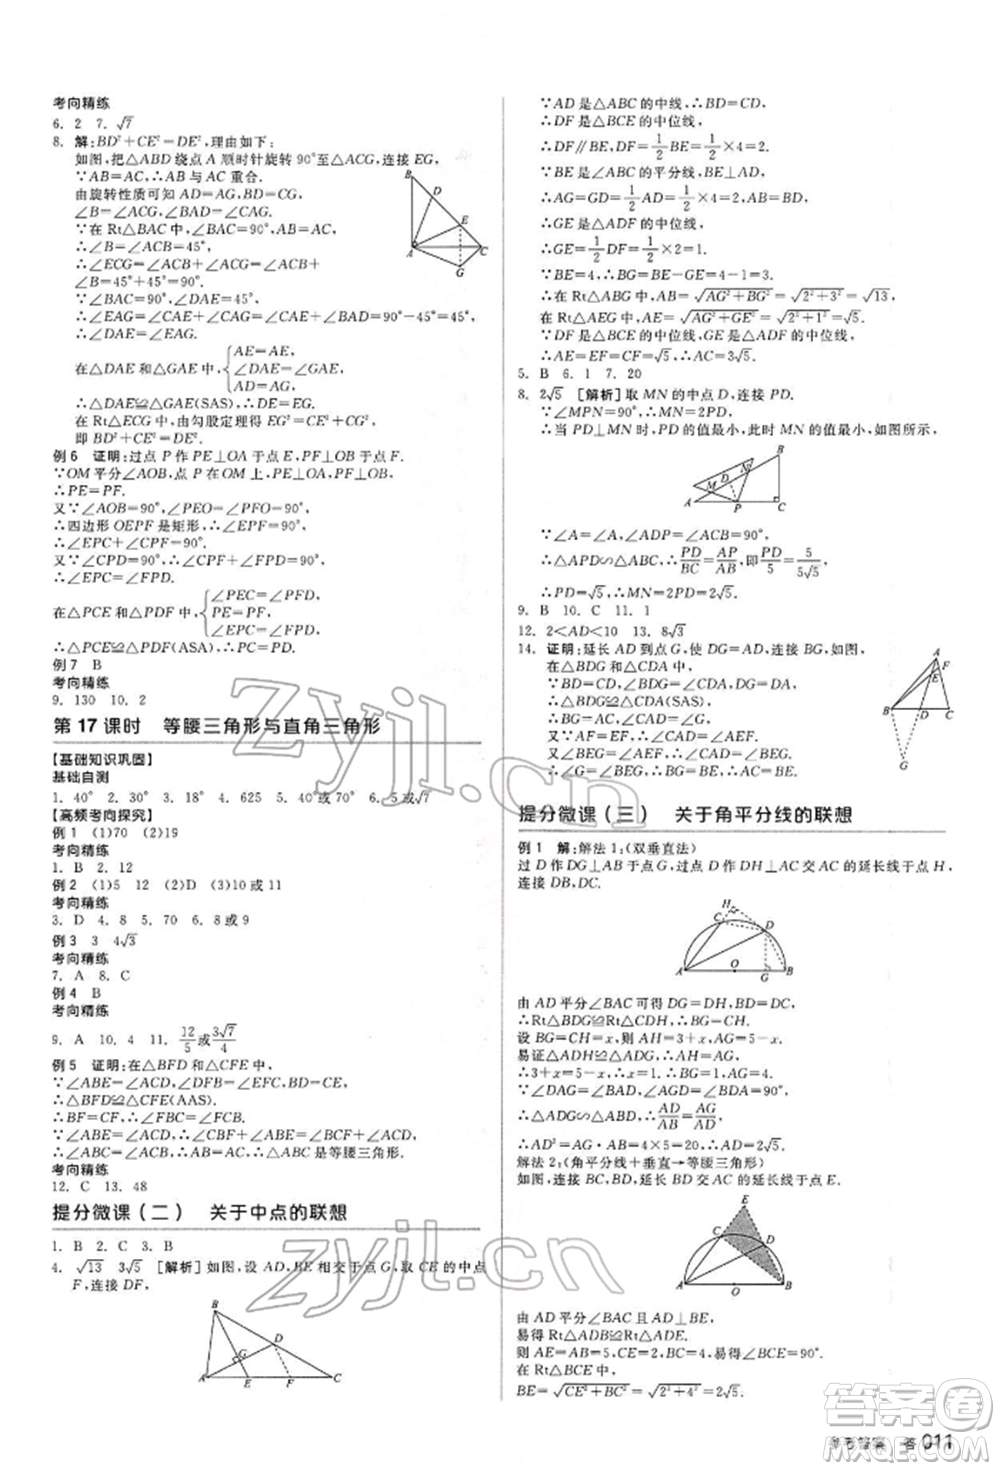 考向精练
6. 2  7. √7
8. 解:BD²+CE²=DE²,理由如下:
如图,把△ABD绕点A顺时针旋转90°至△ACG,连接EG,
∵AB=AC,∴AB与AC重合.
由旋转性质可知AD=AG,BD=CG,
∠B=∠ACG,∠BAD=∠CAG.
∵在Rt△BAC中,∠BAC=90°,
∴∠ECG=∠ACB+∠ACG=∠ACB+
∠B=45°+45°=90°.
∵∠BAC=90°,∠DAE=45°,
∴∠EAG=∠CAE+∠CAG=∠CAE+∠BAD=90°-45°=45°,
∴∠DAE=∠EAG.
在△DAE和△GAE中,{AE=AE, ∠DAE=∠EAG, AD=AG,
∴△DAE≌△GAE(SAS),∴DE=EG.
在Rt△ECG中,由勾股定理得EG²=CE²+CG²,
即BD²+CE²=DE².
例6 证明:过点P作PE⊥OA于点E,PF⊥OB于点F.
∵OM平分∠AOB,点P在OM上,PE⊥OA,PF⊥OB,
∴PE=PF.
又∵∠AOB=90°,∠PEO=∠PFO=90°,
∴四边形OEPF是矩形,∴∠EPF=90°,
∴∠EPC+∠CPF=90°.
又∵∠CPD=90°,∴∠CPF+∠FPD=90°,
∴∠EPC=∠FPD.
在△PCE和△PDF中,{∠PEC=∠PFD, PE=PF, ∠EPC=∠FPD,
∴△PCE≌△PDF(ASA),∴PC=PD.
例7 B
考向精练
9. 130  10. 2
第17课时 等腰三角形与直角三角形
【基础知识巩固】
基础自测
1. 40°  2. 30°  3. 18°  4. 625  5. 20°  6. 5或√7
【高频考向探究】
例1 (1)70 (2)19
考向精练
1. B  2. 12
例2 (1)5 (2)D (3)10或11
考向精练
3. D  4. 8  5. 70  6. 8或9
例3 3  4√3
考向精练
7. A  8. C
例4 B
考向精练
9. A  10. 4  11. 12/5或3√7/4
例5 证明:在△BFD和△CFE中,
∵∠ABE=∠ACD,∠DFB=∠EFC,BD=CE,
∴△BFD≌△CFE(AAS).
∴BF=CF,∴∠FBC=∠FCB.
∵∠ABE=∠ACD,∴∠CBF+∠ABE=∠BCF+
∠ACD,∴∠ABC=∠ACB,∴△ABC是等腰三角形.
考向精练
12. C  13. 48
提分微课(二) 关于中点的联想
1. B  2. C  3. B
4. √13  3√5 [解析]如图,设AD,BE相交于点G,取CE的中点
F,连接DF,
B
D
G
A E F C
∵AD是△ABC的中线,∴BD=CD,
∴DF是△BCE的中位线,
∴DF∥BE,DF=1/2BE=1/2×4=2.
∵BE是△ABC的角平分线,BE⊥AD,
∴AG=GD=1/2AD=1/2×4=2,
∴GE是△ADF的中位线,
∴GE=1/2DF=1/2×2=1.
∵BE=4,∴BG=BE-GE=4-1=3.
∴在Rt△ABG中,AB=√AG²+BG²=√2²+3²=√13,
在Rt△AEG中,AE=√AG²+GE²=√2²+1²=√5.
∵DF是△BCE的中位线,GE是△ADF的中位线,
∴AE=EF=CF=√5,∴AC=3√5.
5. B  6. 1  7. 20
8. 2√5 [解析]取MN的中点D,连接PD.
∵∠MPN=90°,∴MN=2PD,
∴当PD⊥MN时,PD的值最小,此时MN的值最小,如图所示,
B
N
D
M
A P C
∵∠A=∠A,∠ADP=∠ACB=90°,
∴△APD∽△ABC,∴PD/BC=AP/AB,即PD/5=5/5√5,
∴PD=√5,∴MN=2PD=2√5.
9. B  10. C  11. 1
12. 2<AD<10  13. 8√3
14. 证明:延长AD到点G,使DG=AD,连接BG,如图.
在△BDG和△CDA中,
∵BD=CD,∠BDG=∠CDA,
DG=DA,∴△BDG≌△CDA(SAS),
∴BG=AC,∠CAD=∠G.
又∵AE=EF,∴∠CAD=∠AFE.
又∠BFG=∠AFE,∴∠CAD=∠BFG,
∴∠G=∠BFG,∴BG=BF,∴AC=BF.
A
F
E
B D C
G
提分微课(三) 关于角平分线的联想
例1 解:解法1:(双垂直法)
过D作DG⊥AB于点G,过点D作DH⊥AC交AC的延长线于点H,
连接DB,DC.
H
C
D
A O G B
由AD平分∠BAC可得DG=DH,BD=CD,
∴Rt△BDG≌Rt△CDH,∴BG=CH.
设BG=CH=x,则AH=3+x,AG=5-x,
易证△ADH≌△ADG,∴AH=AG,
∴3+x=5-x,∴x=1,∴AG=4.
∵∠DAG=∠BAD,∠AGD=∠BDA=90°,
∴△ADG∽△ABD,∴AD/AB=AG/AD,
∴AD²=AG·AB=4×5=20,∴AD=2√5.
解法2:(角平分线+垂直→等腰三角形)
如图,延长BD,AC,两延长线交于点E.
E
C
D
A O B
由AD平分∠BAC且AD⊥BE,
易得Rt△ADB≌Rt△ADE.
∴AE=AB=5,CE=2,BC=4.
在Rt△BCE中,
BE=√CE²+BC²=√2²+4²=2√5.
参考答案 答 011
Zyjl.cn
zyjl.cn
答案圈